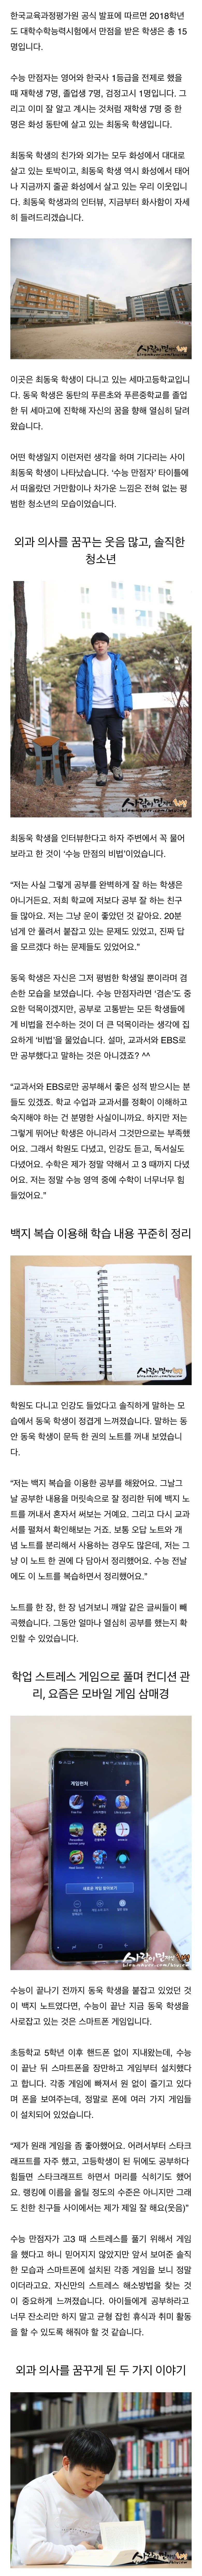 한국교육과정평가원 공식 발표에 따르면 2018학년
도 대학수학능력시험에서 만점을 받은 학생은 총 15
명입니다.
수능 만점자는 영어와 한국사 1등급을 전제로 했을
때 재학생 7명, 졸업생 7명, 검정고시 1명입니다. 그
리고 이미 잘 알고 계시는 것처럼 재학생 7명 중 한
명은 화성 동탄에 살고 있는 최동욱 학생입니다.
최동욱 학생의 친가와 외가는 모두 화성에서 대대로
살고 있는 토박이고, 최동욱 학생 역시 화성에서 태어
나 지금까지 줄곧 화성에서 살고 있는 우리 이웃입니
다. 최동욱 학생과의 인터뷰, 지금부터 화사함이 자세
히 들려드리겠습니다.
사람이 먼저인 화성
이곳은 최동욱 학생이 다니고 있는 세마고등학교입니
다. 동욱 학생은 동탄의 푸른초와 푸른중학교를 졸업
한 뒤 세마고에 진학해 자신의 꿈을 향해 열심히 달려
왔습니다.
어떤 학생일지 이런저런 생각을 하며 기다리는 사이
최동욱 학생이 나타났습니다. ‘수능 만점자’ 타이틀에
서 떠올랐던 거만함이나 차가운 느낌은 전혀 없는 평
범한 청소년의 모습이었습니다.
외과 의사를 꿈꾸는 웃음 많고, 솔직한
청소년
사람이 먼저인 화성
최동욱 학생을 인터뷰한다고 하자 주변에서 꼭 물어
보라고 한 것이 ‘수능 만점의 비법’이었습니다.
“저는 사실 그렇게 공부를 완벽하게 잘 하는 학생은
아니거든요. 저희 학교에 저보다 공부 잘 하는 친구
들 많아요. 저는 그냥 운이 좋았던 것 같아요. 20분
넘게 안 풀려서 붙잡고 있는 문제도 있었고, 진짜 답
을 모르겠다 하는 문제들도 있었어요.”
동욱 학생은 자신은 그저 평범한 학생일 뿐이라며 겸
손한 모습을 보였습니다. 수능 만점자라면 ‘겸손’도 중
요한 덕목이겠지만, 공부로 고통받는 모든 학생들에
게 비법을 전수하는 것이 더 큰 덕목이라는 생각에 집
요하게 ‘비법’을 물었습니다. 설마, 교과서와 EBS로
만 공부했다고 말하는 것은 아니겠죠? ^^
“교과서와 EBS로만 공부해서 좋은 성적 받으시는 분
들도 있겠죠. 학교 수업과 교과서를 정확이 이해하고
숙지해야 하는 건 분명한 사실이니까요. 하지만 저는
그렇게 뛰어난 학생은 아니라서 그것만으로는 부족했
어요. 그래서 학원도 다녔고, 인강도 듣고, 독서실도
다녔어요. 수학은 제가 정말 약해서 고 3 때까지 다녔
어요. 저는 정말 수능 영역 중에 수학이 너무너무 힘
들었어요.”
백지 복습 이용해 학습 내용 꾸준히 정리
사람이 먼저인 화성
학원도 다니고 인강도 들었다고 솔직하게 말하는 모
습에서 동욱 학생이 정겹게 느껴졌습니다. 말하는 동
안 동욱 학생이 문득 한 권의 노트를 꺼내 보였습니
다.
“저는 백지 복습을 이용한 공부를 해왔어요. 그날그
날 공부한 내용을 머릿속으로 잘 정리한 뒤에 백지 노
트를 꺼내서 혼자서 써보는 거예요. 그리고 다시 교과
서를 펼쳐서 확인해보는 거죠. 보통 오답 노트와 개
념 노트를 분리해서 사용하는 경우도 많은데, 저는 그
냥 이 노트 한 권에 다 담아서 정리했어요. 수능 전날
에도 이 노트를 복습하면서 정리했어요.”
노트를 한 장, 한 장 넘겨보니 깨알 같은 글씨들이 빼
곡했습니다. 그동안 얼마나 열심히 공부를 했는지 확
인할 수 있었습니다.
학업 스트레스 게임으로 풀며 컨디션 관
리, 요즘은 모바일 게임 삼매경
게임런처
새로운 게임 찾아보기
사람이 먼저인 화성
수능이 끝나기 전까지 동욱 학생을 붙잡고 있었던 것
이 백지 노트였다면, 수능이 끝난 지금 동욱 학생을
사로잡고 있는 것은 스마트폰 게임입니다.
초등학교 5학년 이후 핸드폰 없이 지내왔는데, 수능
이 끝난 뒤 스마트폰을 장만하고 게임부터 설치했다
고 합니다. 각종 게임에 빠져서 원 없이 즐기고 있다
며 폰을 보여주는데, 정말로 폰에 여러 가지 게임들
이 설치되어 있었습니다.
“제가 원래 게임을 좀 좋아했어요. 어려서부터 스타크
래프트를 자주 했고, 고등학생이 된 뒤에도 공부하다
힘들면 스타크래프트 하면서 머리를 식히기도 했어
요. 랭킹에 이름을 올릴 정도의 수준은 아니지만 그래
도 친한 친구들 사이에서는 제가 제일 잘 해요(웃음)”
수능 만점자가 고3 때 스트레스를 풀기 위해서 게임
을 했다고 하니 믿어지지 않았지만 앞서 보여준 솔직
한 모습과 스마트폰에 설치된 각종 게임을 보니 정말
이더라고요. 자신만의 스트레스 해소방법을 찾는 것
이 중요하게 느껴졌습니다. 아이들에게 공부하라고
너무 잔소리만 하지 말고 균형 잡힌 휴식과 취미 활동
을 할 수 있도록 해줘야 할 것 같습니다.
외과 의사를 꿈꾸게 된 두 가지 이야기
사람이 먼저인 화성